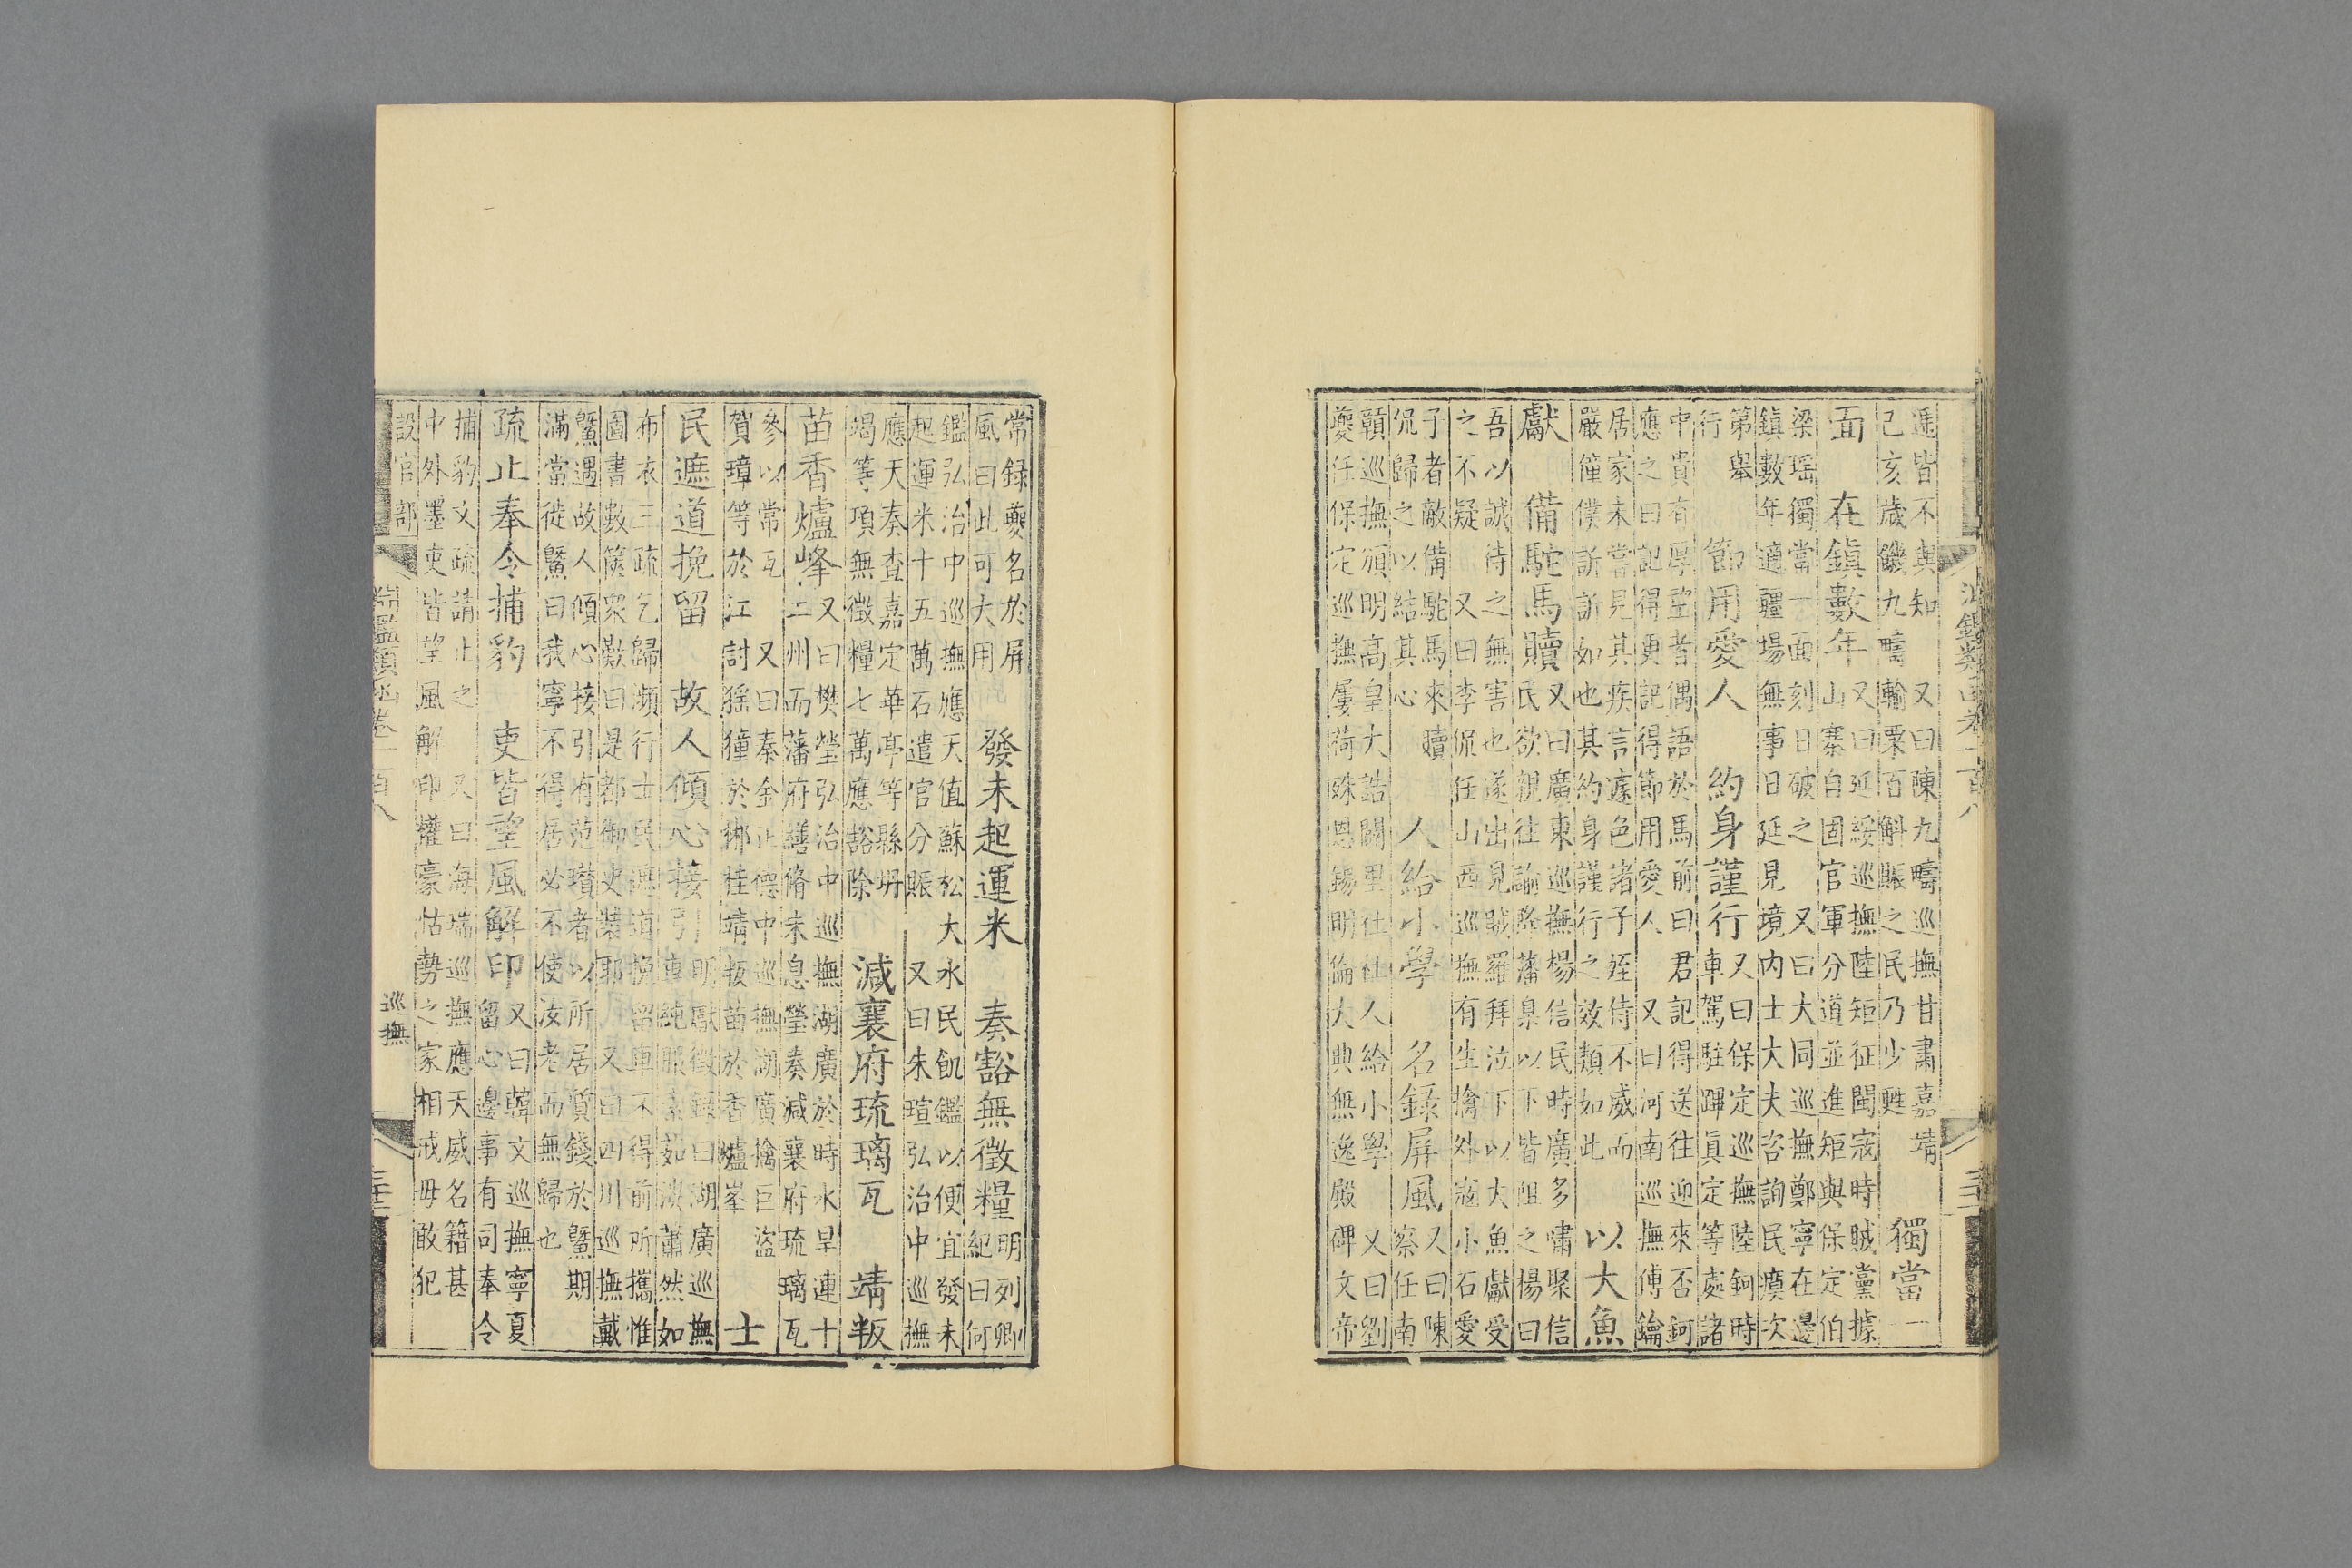 遁皆不與知　又曰陳九疇巡撫甘肅嘉靖
己亥歲饑九疇輸粟百斛賑之民乃少甦
獨當一
面　在鎮數年
又曰延綏巡撫陸矩征閩寇時賊黨據
山寨自固官軍分道並進矩與保定伯
梁瑤獨當一面刻日破之　又曰大同巡撫鄭寧在邊
鎮數年適疆場無事日延見境内士大夫咨詢民瘼次
第舉
行
節用愛人　約身謹行
又曰保定巡撫陸鈳時
車駕駐蹕眞定等處諸
中貴有厚望者偶語於馬前曰君記得送往迎來否鈳
應之曰記得更記得節用愛人　又曰河南巡撫傅鑰
居家未嘗見其疾言遽色諸子姪侍不威而
嚴僮僕訢訢如也其約身謹行之效類如此
以大魚
獻　備駝馬贖
又曰廣東巡撫楊信民時廣多嘯聚信
民欲親往諭降藩臬以下皆阻之楊曰
吾以誠待之無害也遂出見賊羅拜泣下以大魚獻受
之不疑　又曰李侃任山西巡撫有生擒外寇小石愛
子者敵備駝馬來贖
侃歸之以結其心
人給小學　名錄屏風
又曰陳
察任南
贛巡撫頒明高皇大誥闢里社社人給小學　又曰劉
夔任保定巡撫屢荷殊恩錫明倫大典無逸殿碑文帝
常録夔名於屏
風曰此可大用
發未起運米　奏豁無徵糧
明列卿
紀曰何
鑑弘治中巡撫應天值蘇松大水民飢鑑以便宜發未
起運米十五萬石遣官分賑　又曰朱瑄弘治中巡撫
應天奏查嘉定華亭等縣坍
竭等項無徵糧七萬應豁除
減襄府琉璃瓦　靖叛
苗香爐峰
又曰樊瑩弘治中巡撫湖廣於時水旱連十
二州而藩府繕脩未息瑩奏減襄府琉璃瓦
參以常瓦　又曰秦金正德中巡撫湖廣擒巨盜
賀璋等於江討猺獞於郴桂靖叛苗於香爐峯
士
民遮道挽留　故人傾心接引
明獻徵錄曰湖廣巡撫
車純服素茹淡蕭然如
布衣三疏乞歸瀕行士民遮道挽留車不得前所攜惟
圖書數篋衆歎曰是都御史裝耶　又曰四川巡撫戴
鱀遇故人傾心接引有范瓚者以所居質錢於鱀期
滿當徙鱀曰我寧不得居必不使汝老而無歸也
疏止奉令捕豹　吏皆望風解印
又曰韓文巡撫寧夏
留心邊事有司奉令
捕豹文疏請止之　又曰海瑞巡撫應天威名籍甚
中外墨吏皆望風解印權豪怙勢之家相戒毋敢犯
設官部
淵鑑類函卷一百八
巡撫